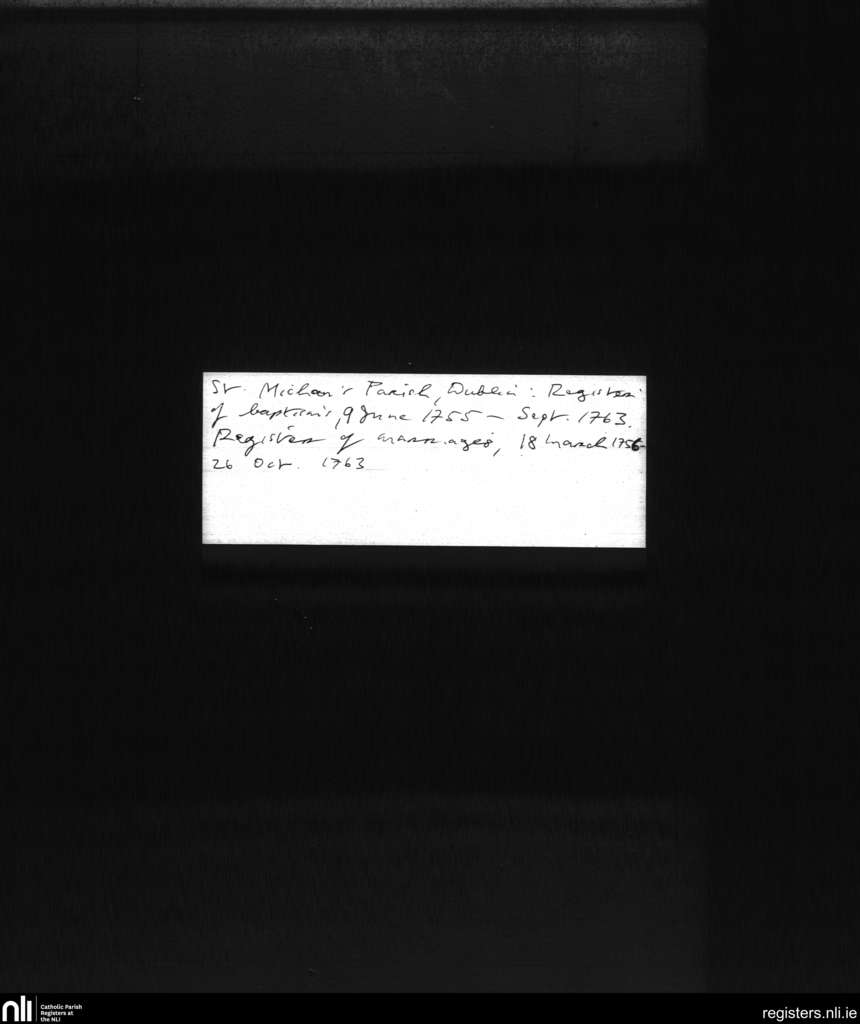 St. Michan's Parish, Dublin: Register
of baptisms, 9 June 1755 – Sept. 1763.
Register of marriages, 18 March 1756-
26 Oct. 1763
nli
Catholic Parish
Registers at
the NLI
registers.nli.ie